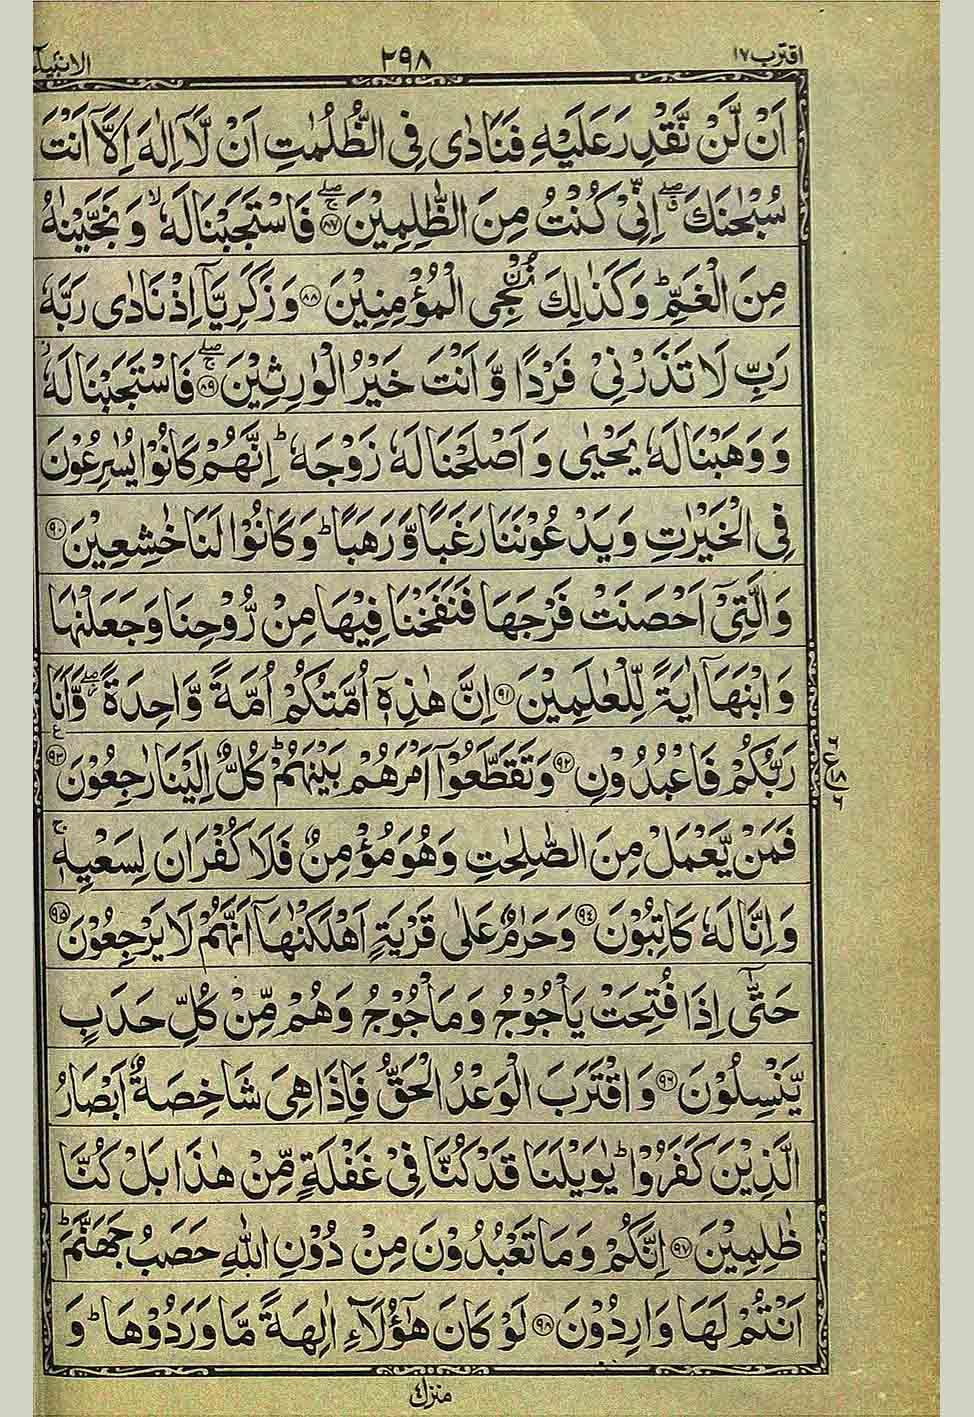 اقترب ١٧ ٢٩٨ الانبيآء
اَنْ لَّنْ نَّقْدِرَ عَلَيْهِ فَنَادٰى فِى الظُّلُمٰتِ اَنْ لَّآ اِلٰهَ اِلَّآ اَنْتَ
سُبْحٰنَكَ ۖق اِنِّىْ كُنْتُ مِنَ الظّٰلِمِيْنَ ۖۚ ﴿٨٧﴾ فَاسْتَجَبْنَا لَهٗ ۙ وَ نَجَّيْنٰهُ
مِنَ الْغَمِّ ؕ وَ كَذٰلِكَ نُـنْجِى الْمُؤْمِنِيْنَ ﴿٨٨﴾ وَ زَكَرِيَّآ اِذْ نَادٰى رَبَّهٗ
رَبِّ لَا تَذَرْنِىْ فَرْدًا وَّ اَنْتَ خَيْرُ الْوٰرِثِيْنَ ۖۚ ﴿٨٩﴾ فَاسْتَجَبْنَا لَهٗ ز
وَ وَهَبْنَا لَهٗ يَحْيٰى وَ اَصْلَحْنَا لَهٗ زَوْجَهٗ ؕ اِنَّهُمْ كَانُوْا يُسٰرِعُوْنَ
فِى الْخَيْرٰتِ وَ يَدْعُوْنَنَا رَغَبًا وَّ رَهَبًا ؕ وَ كَانُوْا لَنَا خٰشِعِيْنَ ﴿٩٠﴾
وَ الَّتِىْٓ اَحْصَنَتْ فَرْجَهَا فَنَفَخْنَا فِيْهَا مِنْ رُّوْحِنَا وَ جَعَلْنٰهَا
وَ ابْنَهَآ اٰيَةً لِّلْعٰلَمِيْنَ ﴿٩١﴾ اِنَّ هٰذِهٖٓ اُمَّتُكُمْ اُمَّةً وَّاحِدَةً ۖز وَّ اَنَا
رَبُّكُمْ فَاعْبُدُوْنِ ﴿٩٢﴾ وَ تَقَطَّعُوْٓا اَمْرَهُمْ بَيْنَهُمْ ؕ كُلٌّ اِلَيْنَا رٰجِعُوْنَ ﴿٩٣﴾ ع
فَمَنْ يَّعْمَلْ مِنَ الصّٰلِحٰتِ وَ هُوَ مُؤْمِنٌ فَلَا كُفْرَانَ لِسَعْيِهٖ ۚ
وَ اِنَّا لَهٗ كَاتِبُوْنَ ﴿٩٤﴾ وَ حَرٰمٌ عَلٰى قَرْيَةٍ اَهْلَكْنٰهَآ اَنَّهُمْ لَا يَرْجِعُوْنَ ﴿٩٥﴾
حَتّٰٓى اِذَا فُتِحَتْ يَاْجُوْجُ وَ مَاْجُوْجُ وَ هُمْ مِّنْ كُلِّ حَدَبٍ
يَّنْسِلُوْنَ ﴿٩٦﴾ وَ اقْتَرَبَ الْوَعْدُ الْحَقُّ فَاِذَا هِىَ شَاخِصَةٌ اَبْصَارُ
الَّذِيْنَ كَفَرُوْا ؕ يٰوَيْلَنَا قَدْ كُنَّا فِىْ غَفْلَةٍ مِّنْ هٰذَا بَلْ كُنَّا
ظٰلِمِيْنَ ﴿٩٧﴾ اِنَّكُمْ وَ مَا تَعْبُدُوْنَ مِنْ دُوْنِ اللّٰهِ حَصَبُ جَهَنَّمَ ؕ
اَنْتُمْ لَهَا وَارِدُوْنَ ﴿٩٨﴾ لَوْ كَانَ هٰٓؤُلَآءِ اٰلِهَةً مَّا وَرَدُوْهَا ؕ وَ
منزل ٤